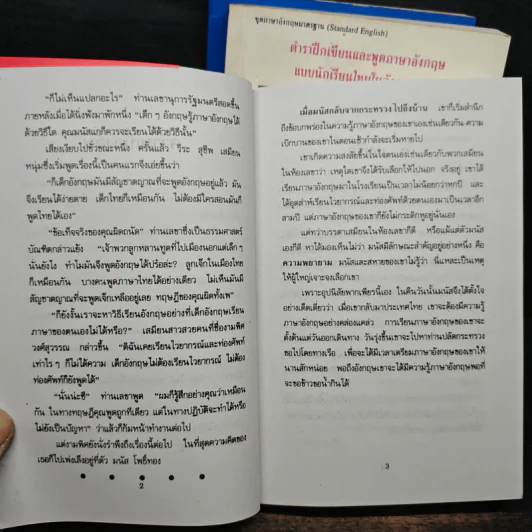 ชุดภาษาอังกฤษมาตรฐาน (Standard English)
ตำราฝึกเขียนและพูดภาษาอังกฤษ
แบบนักเรียนไทยใน
"ก็ไม่เห็นแปลกอะไร" ท่านเลขานุการรัฐมนตรีสอดขึ้น
ภายหลังเมื่อได้นิ่งฟังมาพักหนึ่ง "เด็ก ๆ อังกฤษรู้ภาษาอังกฤษได้
ด้วยวิธีใด คุณมนัสแกก็ควรจะเรียนได้ด้วยวิธีนั้น"
เสียงเงียบไปชั่วขณะหนึ่ง ครั้นแล้ว วีระ สุชีพ เสมียน
หนุ่มซึ่งเริ่มพูดเรื่องนี้เป็นคนแรกจึงเอ่ยขึ้นว่า
"ก็เด็กอังกฤษมันมีสัญชาตญาณที่จะพูดอังกฤษอยู่แล้ว มัน
จึงเรียนได้ง่ายดาย เด็กไทยก็เหมือนกัน ไม่ต้องมีใครสอนมันก็
พูดไทยได้เอง"
"ข้อเท็จจริงของคุณผิดถนัด" ท่านเลขาซึ่งเป็นธรรมศาสตร์
บัณฑิตกล่าวแย้ง "เจ้าพวกลูกหลานทูตที่ไปเมืองนอกแต่เล็กๆ
นั่นยังไง ทำไมมันจึงพูดอังกฤษได้ปร๋อล่ะ? ลูกเจ๊กในเมืองไทย
ก็เหมือนกัน บางคนพูดภาษาไทยได้อย่างเดียว ไม่เห็นมันมี
สัญชาตญาณที่จะพูดเจ๊กเหลืออยู่เลย ทฤษฎีของคุณผิดทั้งเพ"
"ก็ยังงั้นเราจะหาวิธีเรียนอังกฤษอย่างที่เด็กอังกฤษเรียน
ภาษาของตนเองไม่ได้หรือ?" เสมียนสาวสวยคนที่ชื่องามพิศ
วงศ์สุวรรณ กล่าวขึ้น "ดิฉันเคยเรียนไวยากรณ์และท่องศัพท์
เท่าไร ๆ ก็ไม่ได้ความ เด็กอังกฤษไม่ต้องเรียนไวยากรณ์ ไม่ต้อง
ท่องศัพท์ก็ยังพูดได้"
"นั่นน่ะซี" ท่านเลขาพูด "ผมก็รู้สึกอย่างคุณว่าเหมือน
กัน ในทางทฤษฎีคุณพูดถูกทีเดียว แต่ในทางปฏิบัติจะทำได้หรือ
ไม่ยังเป็นปัญหา" ว่าแล้วก็ก้มหน้าทำงานต่อไป
แต่งามพิศยังนั่งรำพึงถึงเรื่องนี้ต่อไป ในที่สุดความคิดของ
เธอก็ไปเพ่งเล็งอยู่ที่ตัว มนัส โพธิ์ทอง
2
เมื่อมนัสกลับจากกระทรวงไปถึงบ้าน เขาก็เริ่มสำนึก
ถึงข้อบกพร่องในความรู้ภาษาอังกฤษของเขาเองเช่นเดียวกัน ความ
เบิกบานของเขาในตอนเช้ากำลังจะเริ่มหายไป
เขาเกิดความสงสัยขึ้นในใจตนเองเช่นเดียวกับพวกเสมียน
ในห้องเลขาว่า เหตุใดเขาจึงได้รับเลือกให้ไปนอก จริงอยู่ เขาได้
เรียนภาษาอังกฤษมาในโรงเรียนเป็นเวลาไม่น้อยกว่าหกปี และ
ได้อุตส่าห์เรียนไวยากรณ์และท่องศัพท์ด้วยตนเองมาเป็นเวลาอีก
สามปี แต่ภาษาอังกฤษของเขาก็ยังไม่กระดิกหูอยู่นั่นเอง
แต่ทว่าบรรดาเสมียนในห้องเลขาก็ดี หรือแม้แต่ตัวมนัส
เองก็ดี หาได้มองเห็นไม่ว่า มนัสมีลักษณะสำคัญอยู่อย่างหนึ่ง คือ
ความพยายาม มนัสและสหายของเขาไม่รู้ว่า นี่แหละเป็นเหตุ
ให้ผู้ใหญ่เจาะจงเลือกเขา
เพราะอุปนิสัยพากเพียรนี้เอง ในคืนวันนั้นมนัสจึงได้ตั้งใจ
อย่างเด็ดเดี่ยวว่า เมื่อเขากลับมาประเทศไทย เขาจะต้องมีความรู้
ภาษาอังกฤษอย่างคล่องแคล่ว การเรียนภาษาอังกฤษของเขาจะ
ตั้งต้นแต่วันออกเดินทาง วันรุ่งขึ้นเขาจะไปหาท่านปลัดกระทรวง
ขอไปโดยทางเรือ เพื่อจะได้มีเวลาเตรียมภาษาอังกฤษของเขาให้
นานสักหน่อย พอถึงอังกฤษเขาจะได้มีความรู้ภาษาอังกฤษพอที่
จะขอข้าวขอน้ำกินได้
3